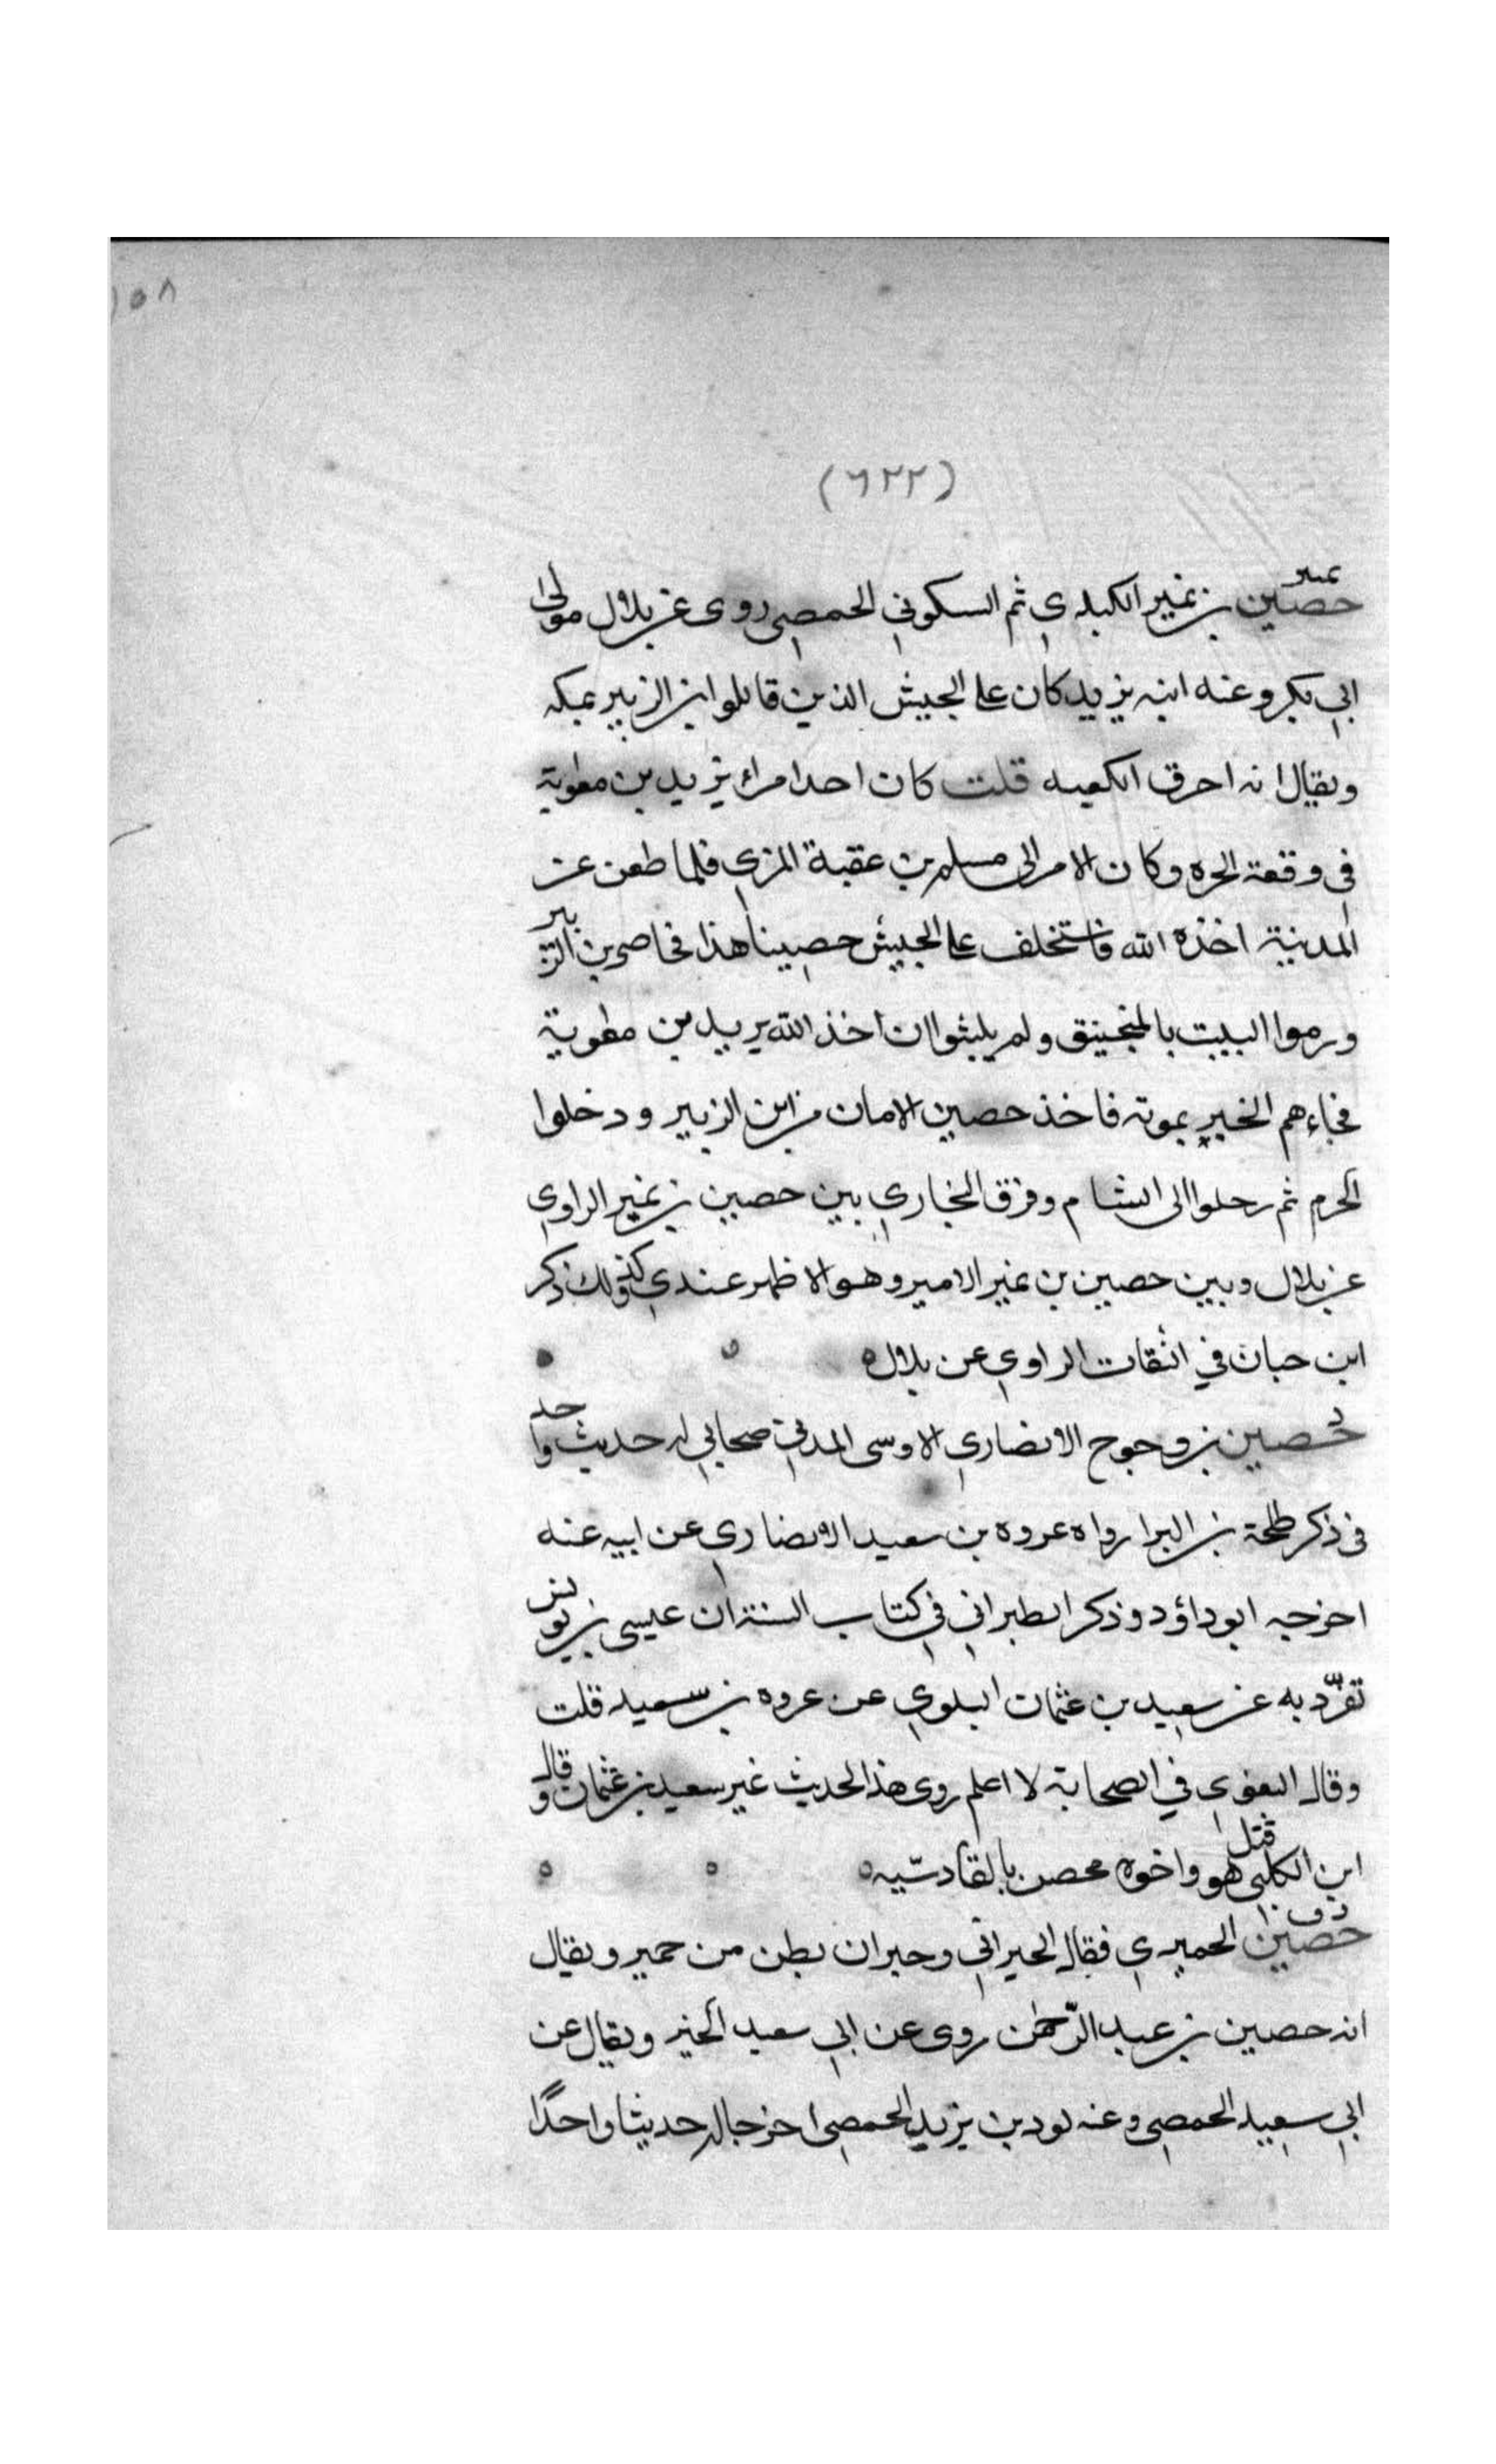 ١٥٨
(٦٢٢)
تمييز
حصين بن نمير الكندي ثم السكوني الحمصي روى عن بلال مولى
ابي بكر وعنه ابنه يزيد كان على الجيش الذين قاتلوا ابن الزبير بمكه
ويقال انه احرق الكعبه قلت كان احد امراء يزيد بن معوية
في وقعة الحره وكان الامر الى مسلم بن عقبة المزي فلما ظعن عن
المدينة اخذه الله فاستخلف على الجيش حصينا هذا فحاصر بن الزبير
ورموا البيت بالمنجنيق ولم يلبثوا ان اخذ الله يزيد بن معوية
فجاءهم الخبر بموته فاخذ حصين الامان من ابن الزبير ودخلوا
الحرم ثم رحلوا الى الشام وفرق البخاري بين حصين بن نمير الراوي
عن بلال وبين حصين بن نمير الامير وهو الاظهر عندي ذكر
ابن حبان في الثقات الراوي عن بلال
د
حصين بن وحوح الانصاري الاوسى المدني صحابي له حديث واحد
في ذكر طلحة بن البرا رواه عروه بن سعيد الانصاري عن ابيه عنه
اخرجه ابو داؤد وذكر الطبراني في كتاب السنة ان عيسى بن يونس
تفرّد به عن سعيد بن عثمان البلوي عن عروه بن سعيد قلت
وقال البغوي في الصحابة لا اعلم روى هذا الحديث غير سعيد بن عثمان وقال
ابن الكلبي قتل هو واخوه محصن بالقادسّيه
د ق
حصين الحميري فقال الحبراني وحبران بطن من حمير ويقال
انه حصين بن عبد الرّحمٰن روى عن ابي سعيد الخير ويقال عن
ابي سعيد الحمصي وعنه ثور بن يزيد الحمصي اخرجا له حديثا واحدًا